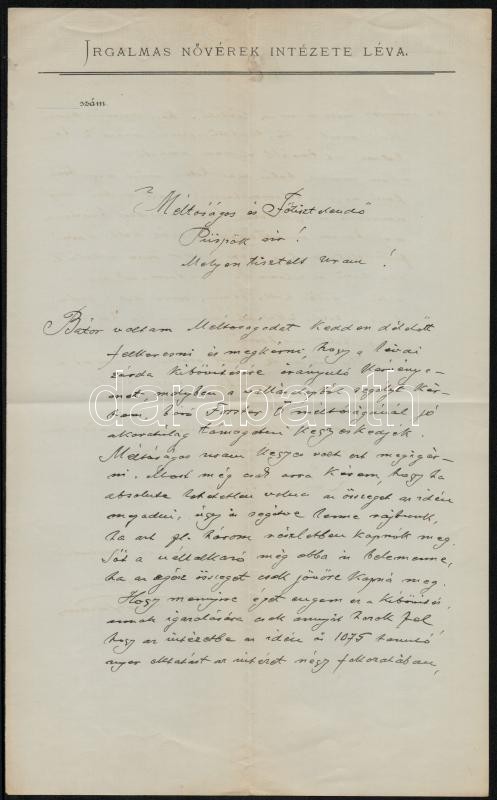 IRGALMAS NŐVÉREK INTÉZETE LÉVA.
szám
Méltóságos és Főtisztelendő
Püspök úr!
Mélyen tisztelt Uram!
Bátor voltam Méltóságodat Kedden délelőtt
felkeresni és megkérni, hogy a lévai
zárda kibővitésére irányuló kérvénye-
met, melyben a vallásalaptól segélyt kér-
tem, báró Forster Ő méltóságánál jó
akaratulag támogatni kegyeskedjék.
Méltóságos uram kegyes volt ezt megigér-
ni. Most még csak arra kérem, hogy ha
absolute lehetetlen volna az összeget az idén
megadni, úgy is segitve lenne rajtunk,
ha azt pl. három részletben kapnók meg.
Sőt a vállalkozó még abba is belemenne,
ha az egész összeget csak jövőre kapná meg.
Hogy mennyire éget engem ez a kibővités,
annak igazolására csak annyit hozok fel
hogy az intézetbe az idén is 1075 tanuló
nyer oktatást az intézet négy
darabanth